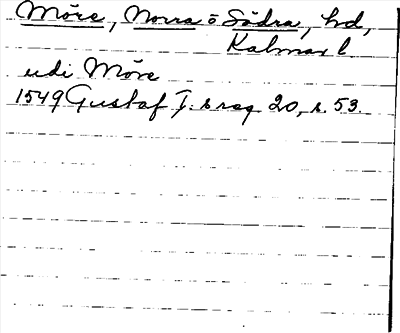 Möre, Norra o Södra, hd,
Kalmar l.
udi Möre
1549 Gustaf I:s reg 20, s. 53.